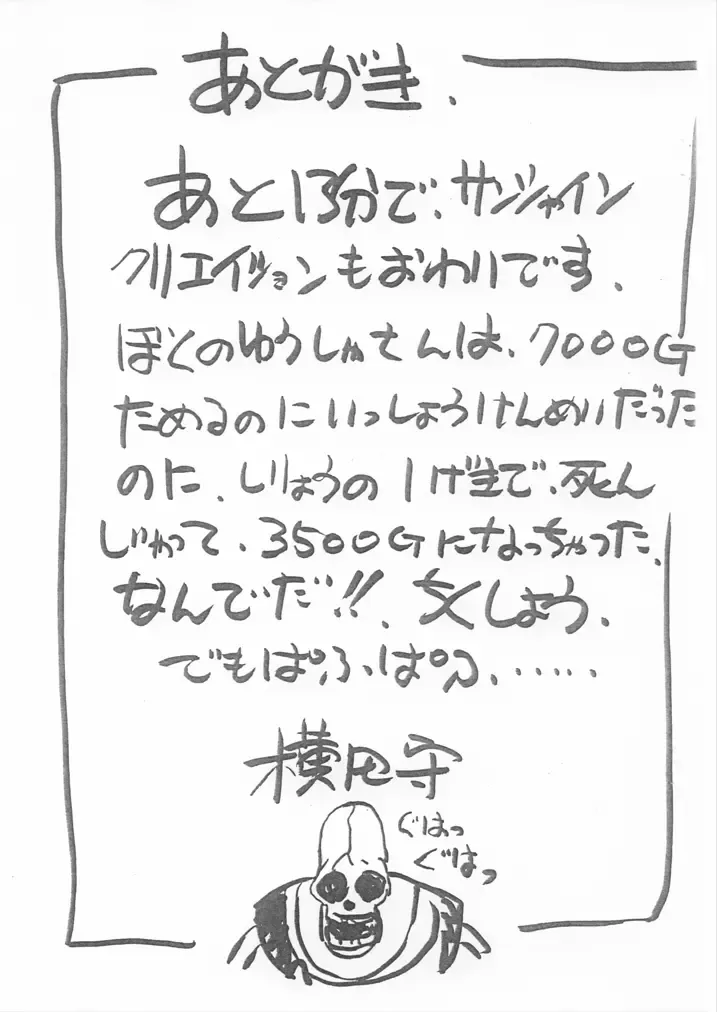 あとがき.
あと13分で、サンシャイン
クリエイションもおわりです.
ぼくのゆうしゃさんは、7000G
ためるのにいっしょうけんめいだった
のに、しりょうの1げきで、死ん
じゃって、3500Gになっちゃった.
なんでだ!!、ちくしょう.
でもぱふぱふ......
横田守
ぐはっ
ぐはっ